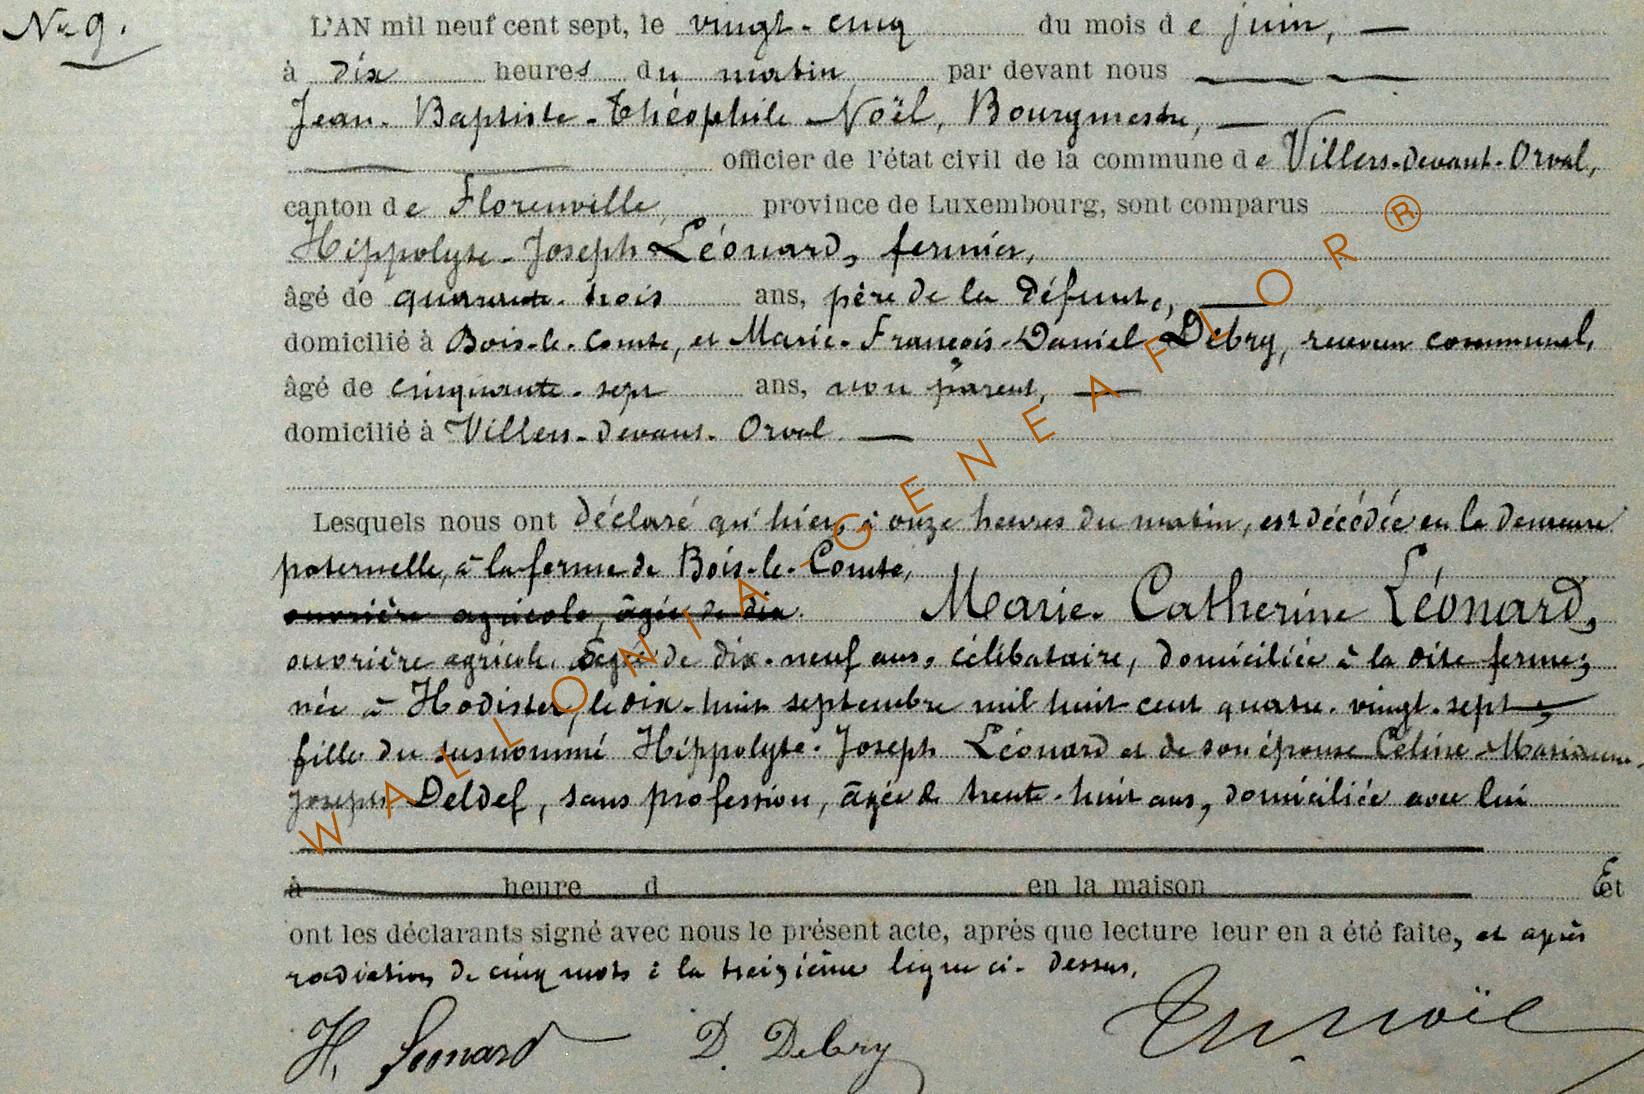 No 9.
L'AN mil neuf cent sept, le vingt-cinq du mois de juin,
à dix heures du matin par devant nous
Jean-Baptiste-Théophile Noël, Bourgmestre,
officier de l'état civil de la commune de Villers-devant-Orval,
canton de Florenville, province de Luxembourg, sont comparus
Hippolyte-Joseph Léonard, fermier,
âgé de quarante-trois ans, père de la défunte,
domicilié à Bois-le-Comte, et Marie-François-Daniel Debry, receveur communal,
âgé de cinquante-sept ans, non parent,
domicilié à Villers-devant-Orval
Lesquels nous ont déclaré qu'hier, à onze heures du matin, est décédée en la demeure
paternelle, à la ferme de Bois-le-Comte,
ouvrière agricole, âgée de dix. Marie-Catherine Léonard,
ouvrière agricole, âgée de dix-neuf ans, célibataire, domiciliée à la dite ferme,
née à Hodister, le dix-huit septembre mil huit cent quatre-vingt-sept,
fille du susnommé Hippolyte-Joseph Léonard et de son épouse Céline-Marianne-
Joseph Deldef, sans profession, âgée de trente-huit ans, domiciliée avec lui
à heure d en la maison Et
ont les déclarants signé avec nous le présent acte, après que lecture leur en a été faite, et après
radiation de cinq mots à la treizième ligne ci-dessus.
H. Léonard D. Debry Th Noël
WALLONIA-GENEAFLOR®